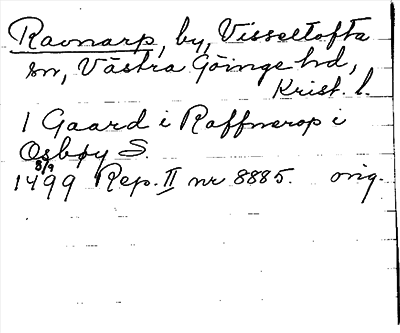 Ravnarp, by, Visseltofta
sn, Västra Göinge hd,
Krist. l.
1 Gaard i Raffnerop i
Osbøy S.
8/9
1499 Rep. II nr 8885. orig.